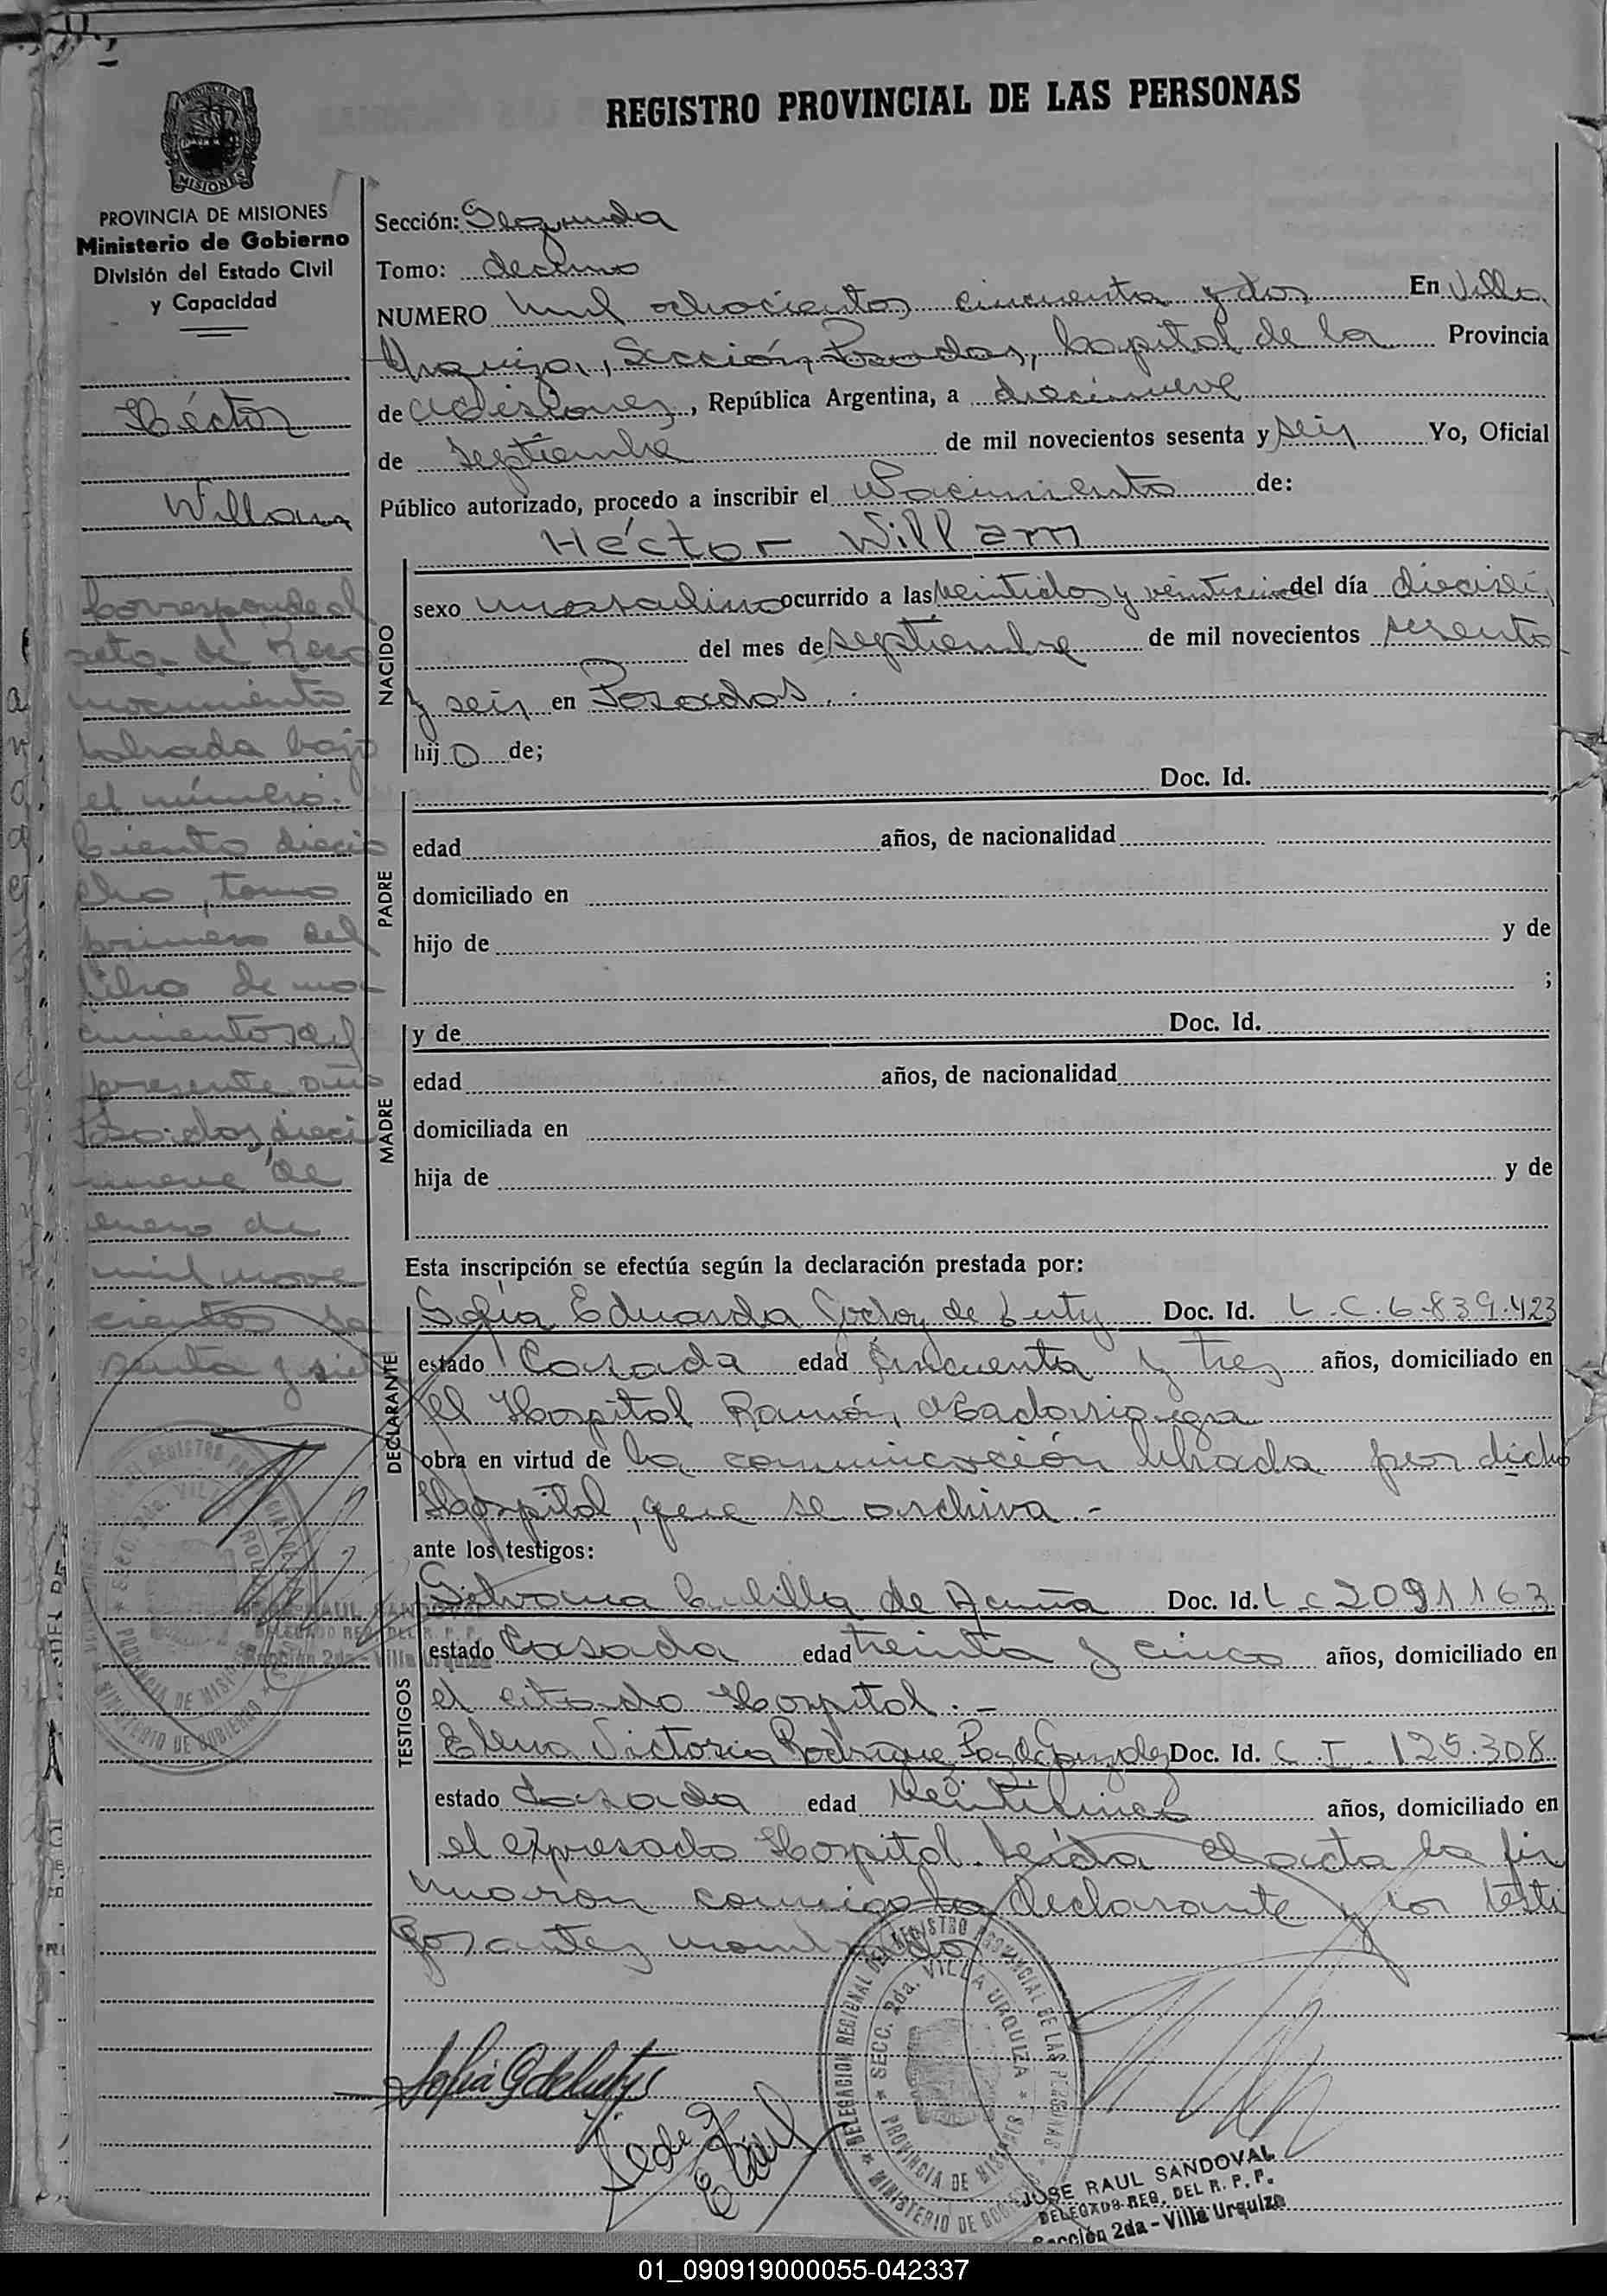 REGISTRO PROVINCIAL DE LAS PERSONAS
MISIONES
PROVINCIA DE MISIONES
Ministerio de Gobierno
División del Estado Civil
y Capacidad
Héctor
Willam
Corresponde al
acta de Reco
nocimiento
labrada bajo
el número
Ciento diecio
cho, tomo
primero del
libro de na-
cimientos del
presente año
Posadas, dieci
nueve de
enero de
mil nove
cientos se
senta y siete
Sección: Segunda
Tomo: decimo
NUMERO mil ochocientos cincuenta y dos En Villa
Urquiza, Sección Posadas, Capital de la Provincia
de Misiones, República Argentina, a diecinueve
de septiembre de mil novecientos sesenta y seis Yo, Oficial
Público autorizado, procedo a inscribir el Nacimiento de:
Héctor Willam
NACIDO
sexo masculino ocurrido a las veintidos y veinticinco del día dieciseis
del mes de septiembre de mil novecientos sesenta
y seis en Posadas.
hijo de;
Doc. Id.
PADRE
edad años, de nacionalidad
domiciliado en
hijo de y de
;
y de Doc. Id.
MADRE
edad años, de nacionalidad
domiciliada en
hija de y de
Esta inscripción se efectúa según la declaración prestada por:
DECLARANTE
Sofía Eduarda de Luty Doc. Id. L.C.6.839.423
estado Casada edad cincuenta y tres años, domiciliado en
el Hospital Ramón Madariaga
obra en virtud de la comunicación librada por dicho
Hospital, que se archiva.-
ante los testigos:
TESTIGOS
Silvana de Acuña Doc. Id. L c 2091163
estado Casada edad treinta y cinco años, domiciliado en
el citado Hospital.-
Elena Victoria Rodriguez de Gonzalez Doc. Id. C.I. 125.308
estado Casada edad veinticinco años, domiciliado en
el expresado Hospital. Leída el acta la fir
maron conmigo la declarante y los testi
gos antes nombrados
Sofía G de Lutys
DELEGACION REGIONAL DEL REGISTRO PROVINCIAL DE LAS PERSONAS
SECC. 2da. VILLA URQUIZA
PROVINCIA DE MISIONES
MINISTERIO DE GOBIERNO
JOSE RAUL SANDOVAL
DELEGADO REG. DEL R. P. P.
Sección 2da - Villa Urquiza
01_090919000055-042337